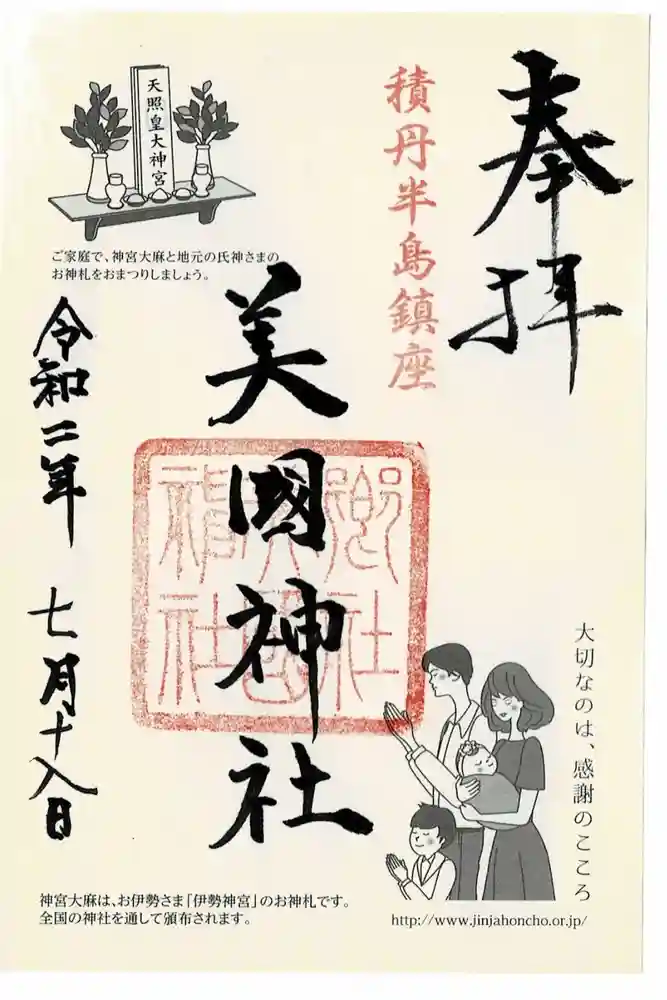 奉拝
積丹半島鎮座
天照皇大神宮
ご家庭で、神宮大麻と地元の氏神さまの
お神札をおまつりしましょう。
美國神社
令和二年 七月十八日
大切なのは、感謝のこころ
神宮大麻は、お伊勢さま「伊勢神宮」のお神札です。
全国の神社を通して頒布されます。
http://www.jinjahoncho.or.jp/